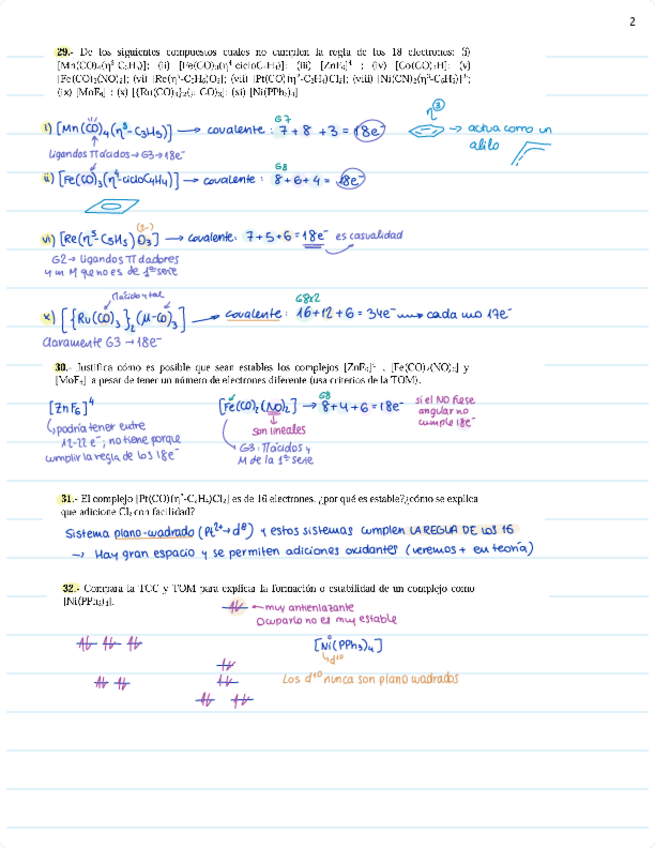 2
29.- De los siguientes compuestos cuales no cumplen la regla de los 18 electrones: (i)
[Mn(CO)₄(η³-C₃H₅)]; (ii) [Fe(CO)₃(η⁴-cicloC₄H₄)]; (iii) [ZnF₆]⁴⁻; (iv) [Co(CO)₄H]; (v)
[Fe(CO)₂(NO)₂]; (vi) [Re(η⁵-C₅H₅)O₃]; (vii) [Pt(CO)(η²-C₂H₄)Cl₂]; (viii)
(ix) ; (x) [{Ru(CO)₃}₂(μ-CO)₃]; (xi)
η③
i) [Mn(CO)₄(η³-C₃H₅)] → covalente: 7+8+3=18e⁻
G7
→ actua como un
alilo
Ligandos Π ácidos → G3 → 18e⁻
ii) [Fe(CO)₃(η⁴-cicloC₄H₄)] → covalente: 8+6+4=18e⁻
G8
vi) [Re(η⁵-C₅H₅)O₃] → covalente: 7+5+6=18e⁻ es casualidad
G2 → Ligandos Π dadores
y un M que no es de 1ª serie
Π ácido y tal
x) [{Ru(CO)₃}₂(μ-CO)₃] → covalente: 16+12+6=34e⁻ → cada uno 17e⁻
G8x2
claramente G3 → 18e⁻
30.- Justifica cómo es posible que sean estables los complejos [ZnF₆]⁴⁻, [Fe(CO)₂(NO)₂] y
a pesar de tener un número de electrones diferente (usa criterios de la TOM).
[ZnF₆]⁴
podría tener entre
12-22 e⁻; no tiene porque
cumplir la regla de los 18e⁻
[Fe(CO)₂(NO)₂] → 8+4+6=18e⁻
G8
son lineales
G3: Π ácidos y
M de la 1ª serie
si el NO fuese
angular no
cumple 18e⁻
31.- El complejo [Pt(CO)(η²-C₂H₄)Cl₂] es de 16 electrones, ¿por qué es estable? ¿cómo se explica
que adicione Cl₂ con facilidad?
Sistema plano-cuadrado (Pt²⁺→d⁸) y estos sistemas cumplen LA REGLA DE LOS 16
→ Hay gran espacio y se permiten adiciones oxidantes (veremos + en teoría)
32.- Compara la TCC y TOM para explicar la formación o estabilidad de un complejo como
[Ni(PPh₃)₄].
← muy antienlazante
Ocuparlo no es muy estable
[Ni(PPh₃)₄]
d¹⁰
Los d¹⁰ nunca son plano cuadrados